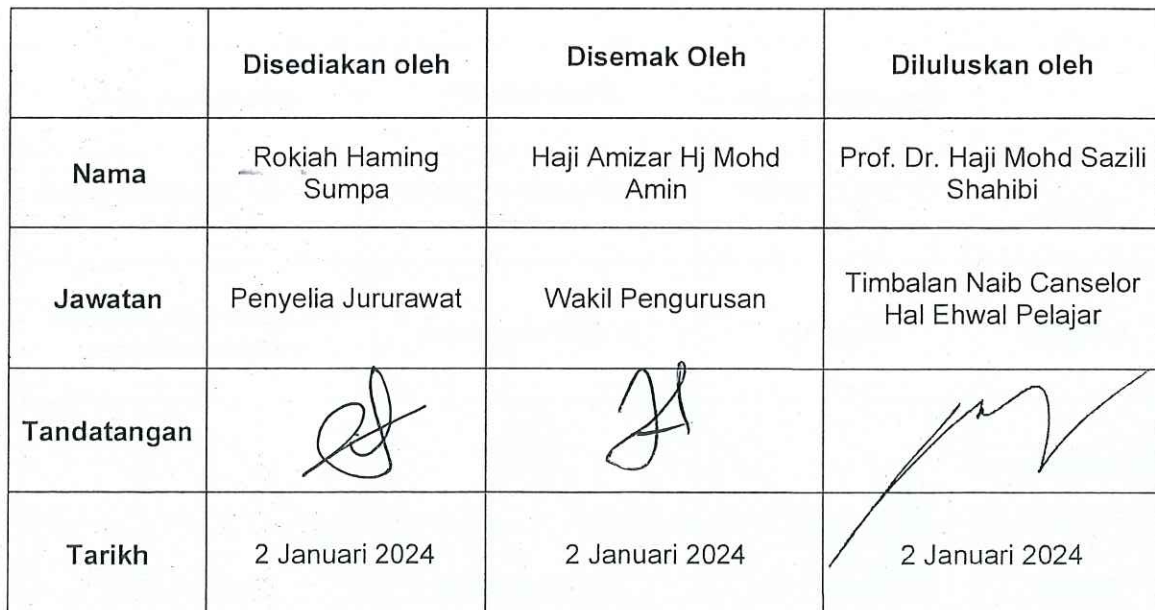 Disediakan oleh
Disemak Oleh
Diluluskan oleh
Nama
Rokiah Haming
Sumpa
Haji Amizar Hj Mohd
Amin
Prof. Dr. Haji Mohd Sazili
Shahibi
Jawatan
Penyelia Jururawat
Wakil Pengurusan
Timbalan Naib Canselor
Hal Ehwal Pelajar
Tandatangan
Tarikh
2 Januari 2024
2 Januari 2024
2 Januari 2024